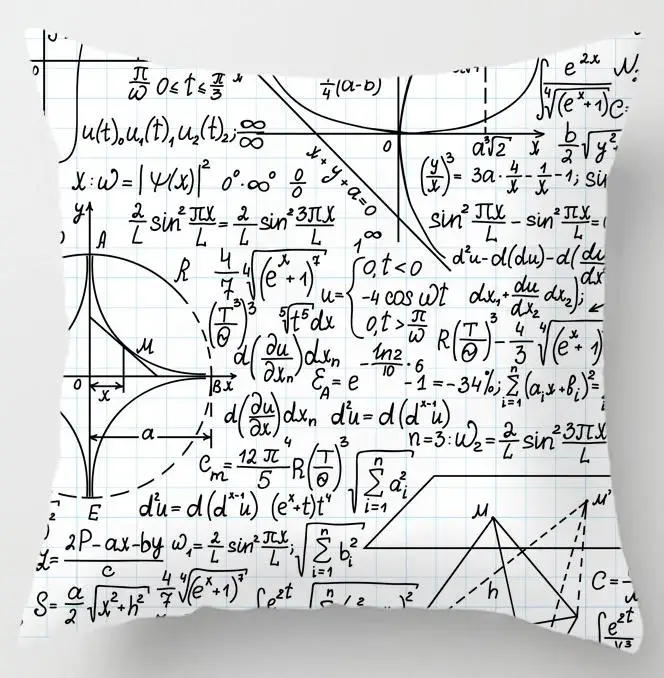 0
π/ω 0≤t≤π/3 x
1/4(a-b)
e^2x
⁴√(e^x+1)
C=
u(t)₀u₁(t)₁u₂(t)₂; ∞/∞
0 a³√2 x
b/2 √y²
x:ω=|Ψ(x)|² 0°·∞° 0/0
x+y+a=0
(y/x)³= 3a·4/x-1/x-1;
y
2/L sin² πx/L = 2/L sin² 3πx/L
sin² πx/L - sin² πx/L=
1^∞
A
R
4/7 ⁴√(e^x+1)⁷
u= {0,t<0
-4 cos ωt
0,t>π/ω
d²u-d(du)-d(du/dx
dx₁+du/dx₂ dx₂);
(T/Θ)³)³ ⁵√t⁵dx
R(T/Θ)³-4/3 ⁴√(e^x+1)
M
d(∂u/∂xₙ)dxₙ
0 x B x
ε_A=e^-ln2/10·6 -1=-34%; Σ i=1 n (aᵢx+bᵢ)²=
d(∂u/∂x)dxₙ d²u=d(d^x-1u)
a
n=3:ω₂=2/L sin² 3πx/L
e_m=12π⁴/5 R(T/Θ)³ √Σ i=1 n aᵢ²
E
d²u=d(d^x-1u) (e^x+t)t⁴
M M'
2P-ax-by/c ω₁=2/L sin² πx/L; √Σ i=1 n bᵢ²
h
C=-
S=a/2 √x²+h² 4/7 ⁴√(e^x+1)⁷ ∫e^2t
∫e^2t